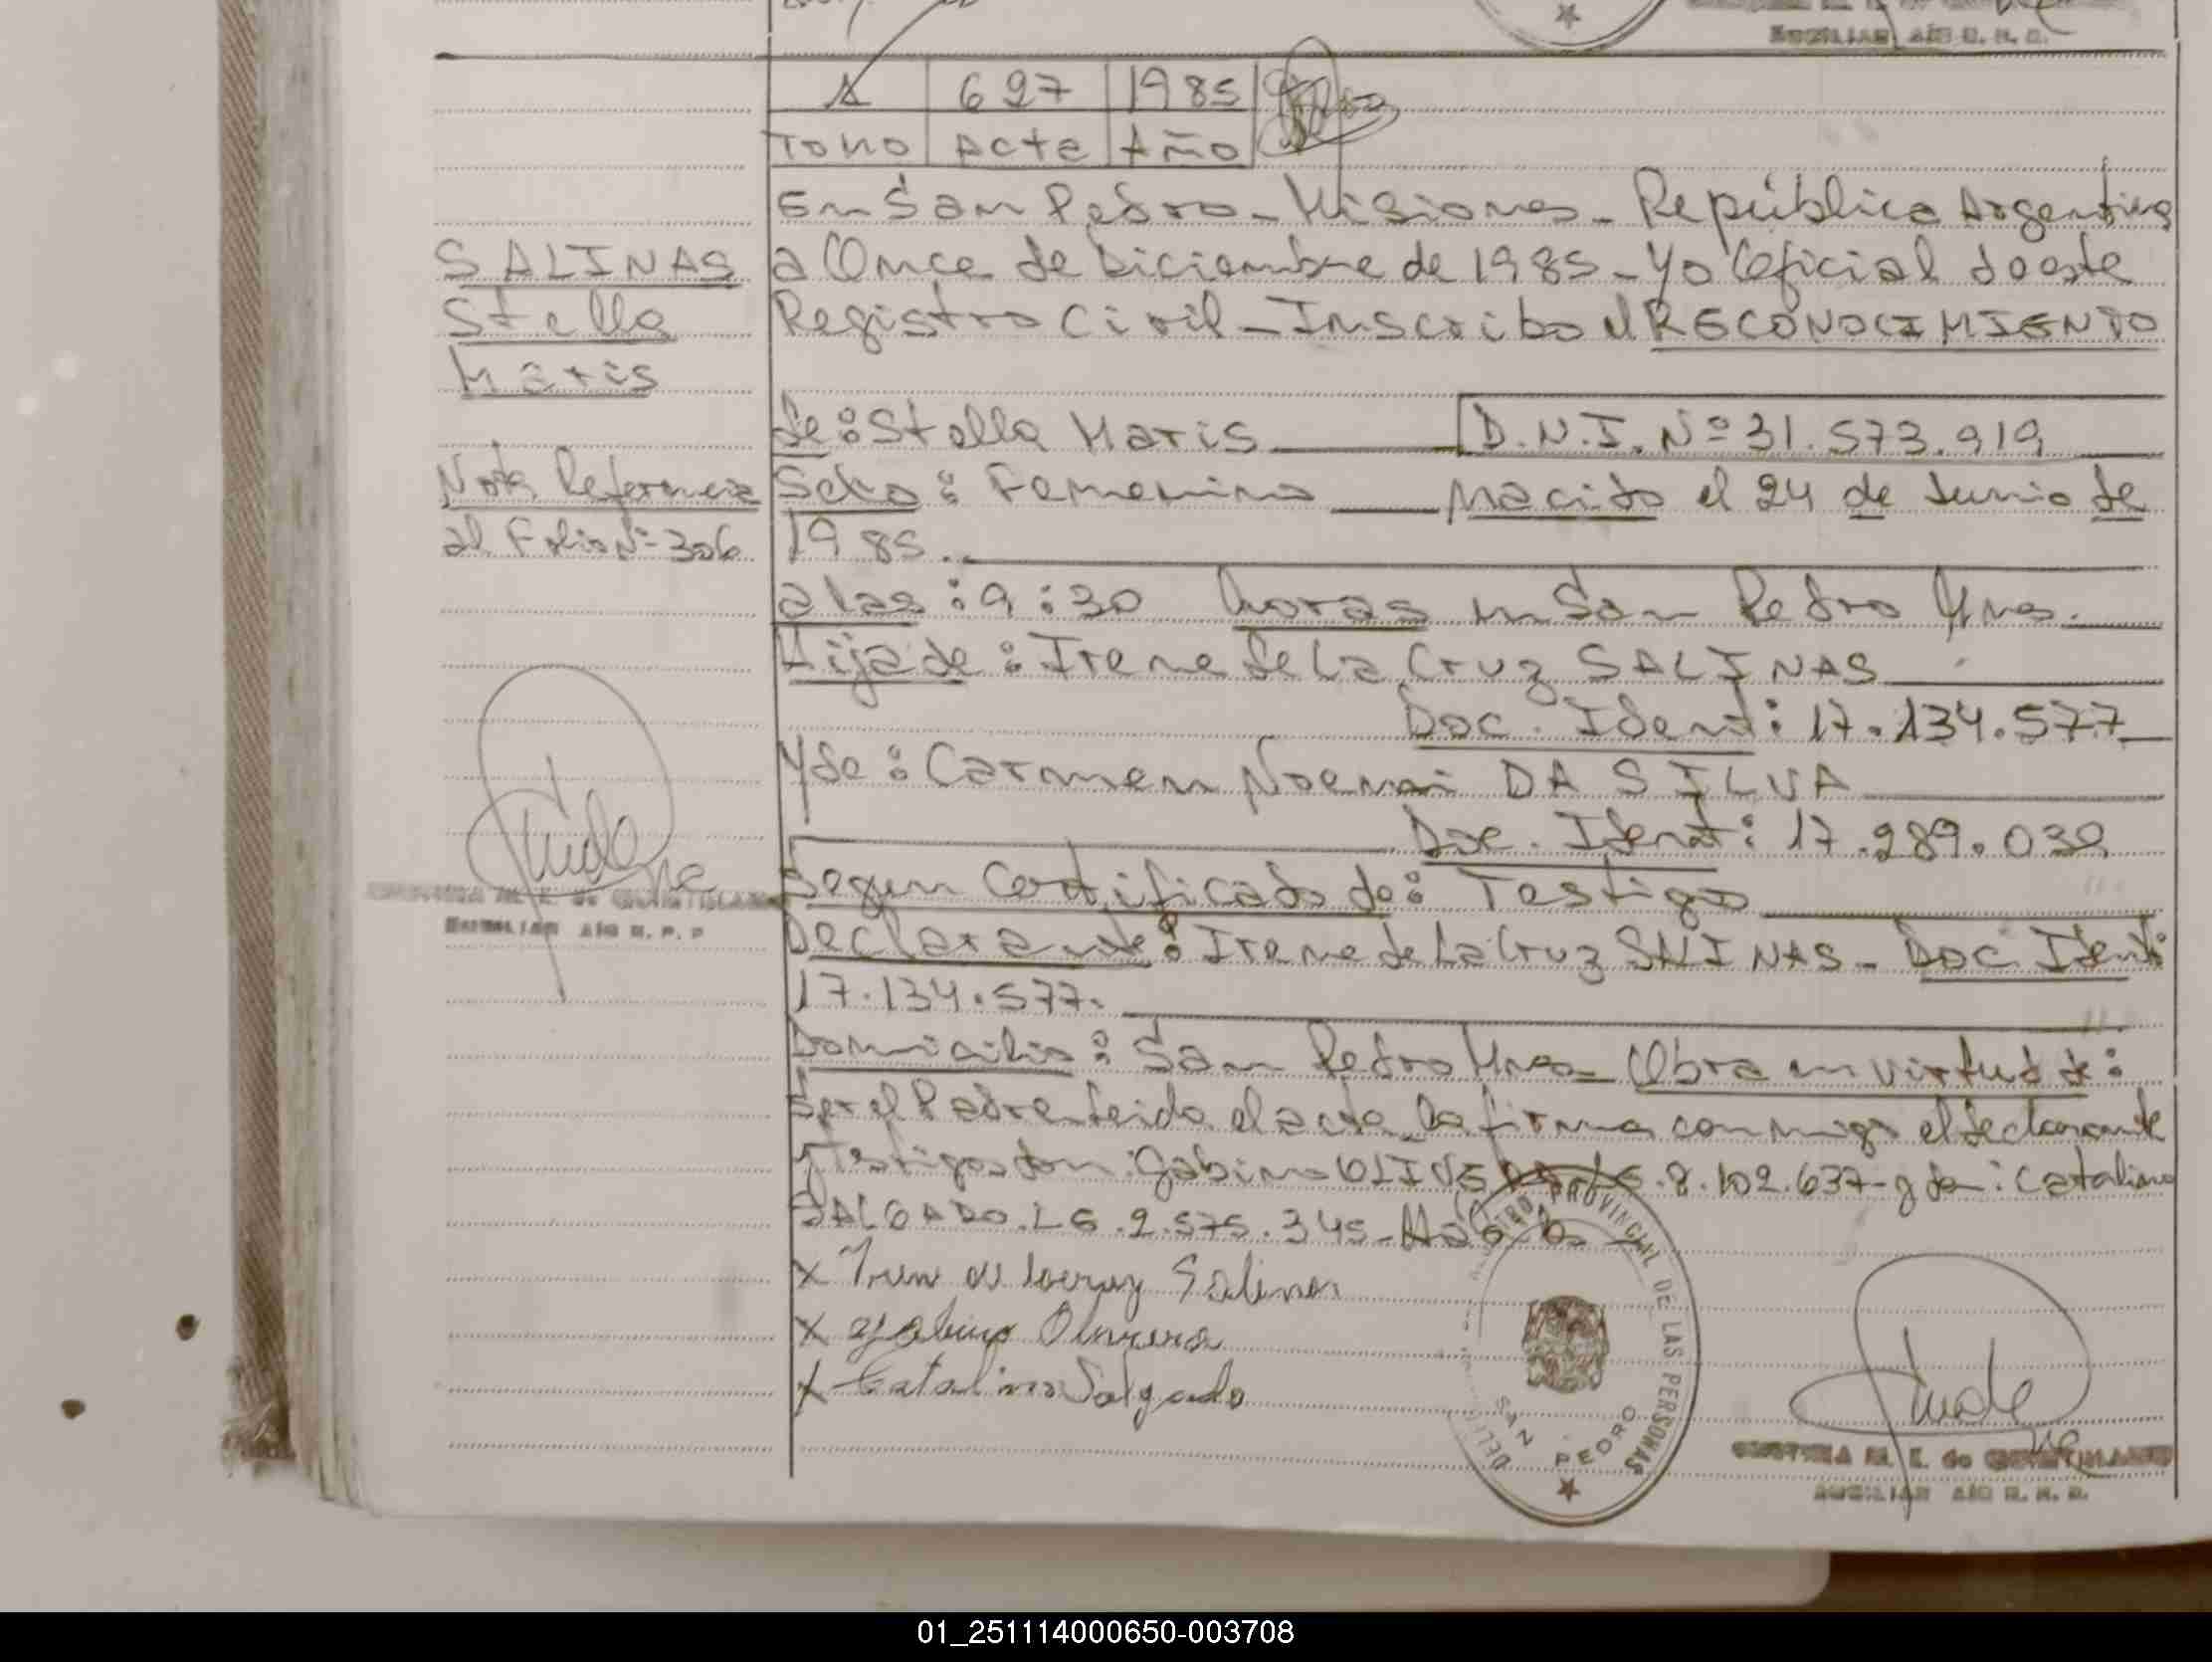 AUXILIAR
1 697 1985
Tomo Acta Año
En San Pedro - Misiones - República Argentina
SALINAS
a Once de Diciembre de 1985 - Yo Oficial de este
Stella
Registro Civil - Inscribo el RECONOCIMIENTO
Maris
de: Stella Maris D.N.I. Nº 31.573.919
Nota Referencia
Sexo: Femenino nacido el 24 de Junio de
al Folio Nº 306
1985.
a las: 9:30 horas en San Pedro Mnes.
Hija de: Irene de La Cruz SALINAS
Doc. Ident: 17.134.577
Y de: Carmen Noemi DA SILVA
Doc. Ident: 17.289.039
Segun Certificado de: Testigo
M. E. de
AUXILIAR
Declarante: Irene de La Cruz SALINAS - Doc Ident:
17.134.577.
Domicilio: San Pedro Mnes - Obra en virtud de:
Ser el Padre - Leida el acta la firma conmigo el declarante
y testigos don: Gabino 8.102.637 - y don: Catalino
SALGADO. LE. 2.575.345 -
X Irene de la cruz Salinas
X Gabino Olivera
X Catalino Salgado
PROVINCIAL DE LAS PERSONAS
SAN PEDRO
M. E. de
AUXILIAR
01_251114000650-003708